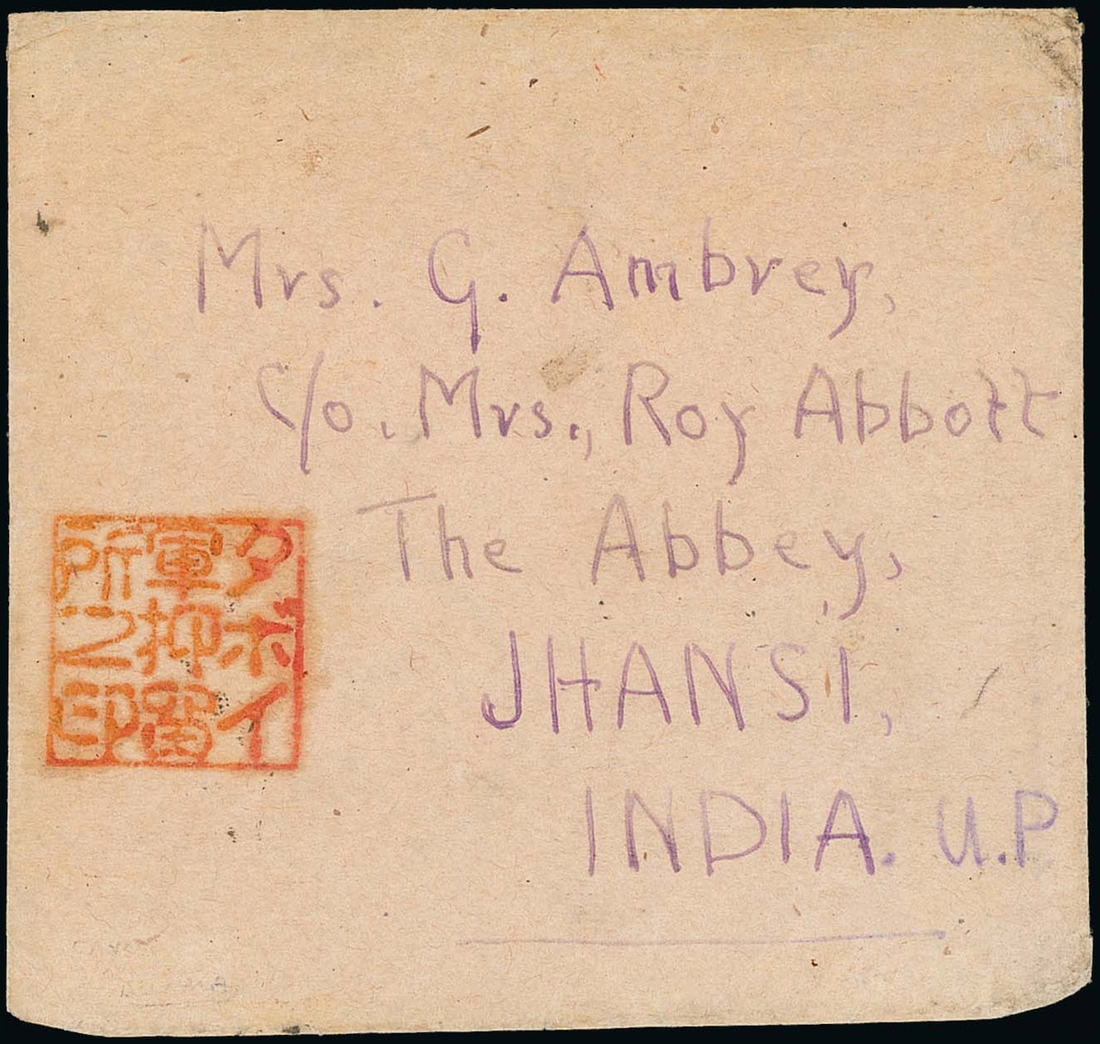 Mrs. G. Ambrey,
c/o. Mrs., Roy Abbott
The Abbey,
JHANSI,
INDIA. U.P
タボイ
軍抑留
所之印